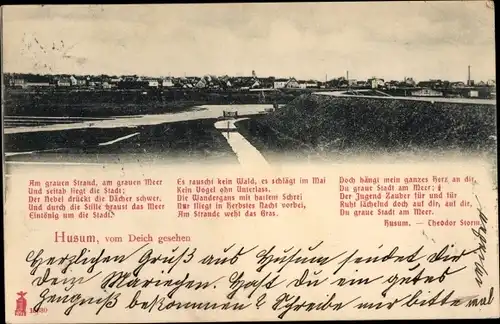 Am grauen Strand, am grauen Meer
Und seitab liegt die Stadt;
Der Nebel drückt die Dächer schwer,
Und durch die Stille braust das Meer
Eintönig um die Stadt.
Es rauscht kein Wald, es schlägt im Mai
Kein Vogel ohn Unterlass.
Die Wandergans mit hartem Schrei
Nur fliegt in Herbstes Nacht vorbei,
Am Strande weht das Gras.
Doch hängt mein ganzes Herz an dir,
Du graue Stadt am Meer;
Der Jugend Zauber für und für
Ruht lächelnd doch auf dir, auf dir,
Du graue Stadt am Meer.
Husum. — Theodor Storm.
Husum, vom Deich gesehen
Herzlichen Gruß aus Husum sendet Dir
Dein Mariechen. Hast Du ein gutes
Zeugniß bekommen? Schreibe mir bitte mal